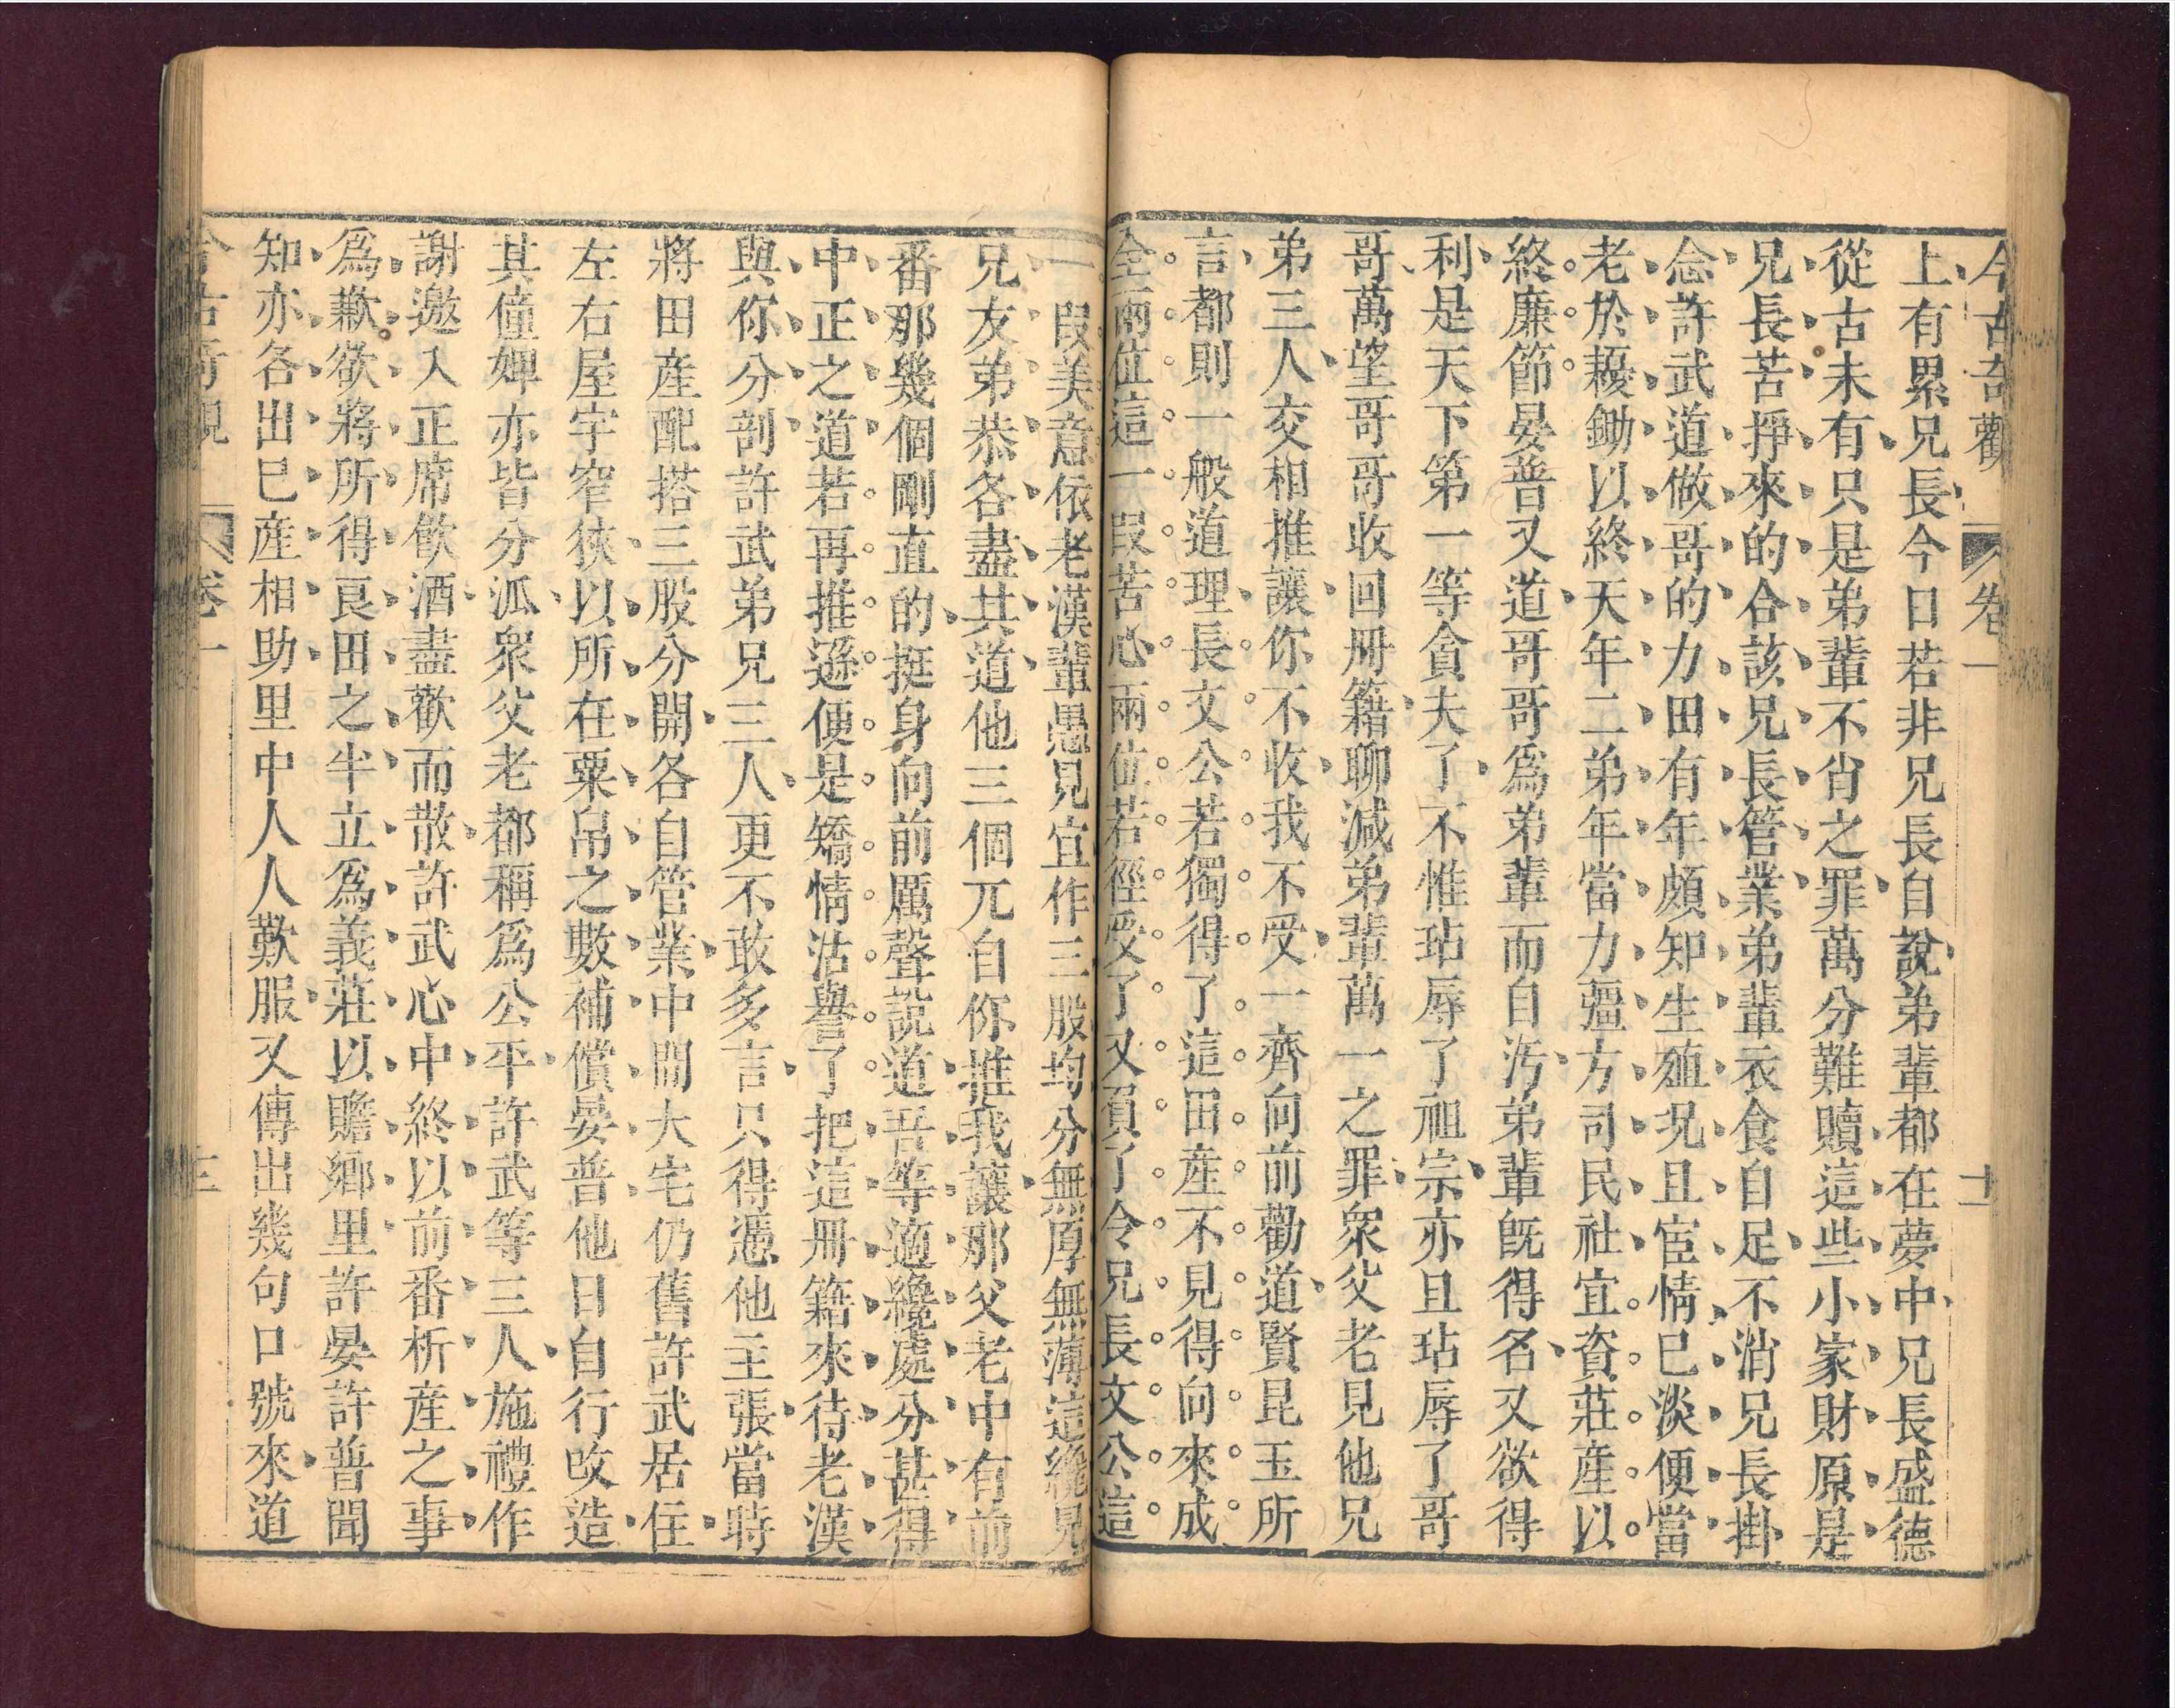 今古奇觀 卷一 十二
上有累兄長今日若非兄長自說弟輩都在夢中兄長盛德
從古未有只是弟輩不肖之罪萬分難贖這些小家財原是
兄長苦掙來的合該兄長管業弟輩衣食自足不消兄長掛
念許武道做哥的力田有年頗知生殖况且宦情已淡便當
老於耰鋤以終天年二弟年當力彊方司民社宜資莊産以
終廉節晏普又道哥哥爲弟輩而自汚弟輩既得名又欲得
利是天下第一等貪夫了不惟玷辱了祖宗亦且玷辱了哥
哥萬望哥哥收回冊籍聊減弟輩萬一之罪衆父老見他兄
弟三人交相推讓你不收我不受一齊向前勸道賢昆玉所
言都則一般道理長文公若獨得了這田産不見得向來成
全兩位這一叚苦心兩位若徑受了又負了令兄長文公這
一叚美意依老漢輩愚見宜作三股均分無厚無薄這纔見
兄友弟恭各盡其道他三個兀自你推我讓那父老中有前
番那幾個剛直的挺身向前厲聲説道吾等適纔處分甚得
中正之道若再推遜便是矯情沽譽了把這冊籍來待老漢
與你分剖許武弟兄三人更不敢多言只得憑他主張當時
將田産配搭三股分開各自管業中間大宅仍舊許武居住
左右屋宇窄狹以所在粟帛之數補償晏普他日自行改造
其僮婢亦皆分派衆父老都稱爲公平許武等三人施禮作
謝邀入正席飲酒盡歡而散許武心中終以前番析産之事
爲歉欲將所得良田之半立爲義莊以贍鄉里許晏許普聞
知亦各出已産相助里中人人歎服又傳出幾句口號來道
今古奇觀 卷一